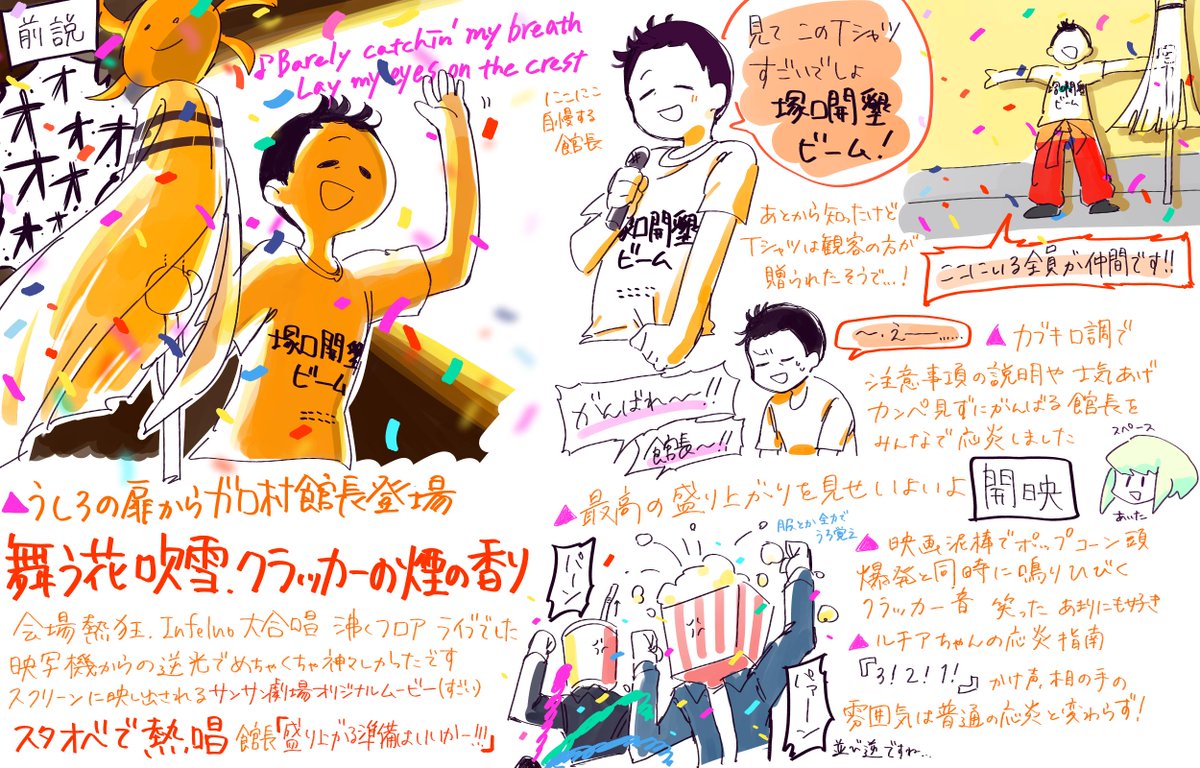 前説
オオ
オオオ
オオ
♪Barely catchin' my breath
Lay my eyes on the crest
塚口開墾
ビーム
▲うしろの扉からガロ村館長登場
舞う花吹雪、クラッカーの煙の香り
会場熱狂、Infelno大合唱 沸くフロア ライブでした
映写機からの逆光でめちゃくちゃ神々しかったです
スクリーンに映し出されるサンサン劇場オリジナルムービー(すごい)
スタオベで熱唱 館長「盛り上がる準備はいいかー!!!」
にこにこ
自慢する
館長
見て このTシャツ
すごいでしょ
塚口開墾
ビーム!
塚口開墾
ビーム
あとから知ったけど
Tシャツは観客の方が
贈られたそうで…!
塚口開墾
ビーム
ここにいる全員が仲間です!!
〜、え――……
がんばれ〜〜!!
館長〜!!
▲カブキ口調で
注意事項の説明や 士気あげ
カンペ見ずにがんばる館長を
みんなで応炎しました
▲最高の盛り上がりを見せいよいよ
開映
スペース
あいた
服とか全力で
うろ覚え
パーン
パァーン
▲映画泥棒でポップコーン頭
爆発と同時に鳴りひびく
クラッカー音 笑った あまりにも好き
▲ルチアちゃんの応炎指南
『3!2!1!』かけ声、相の手の
雰囲気は普通の応炎と変わらず!
並び逆ですね…